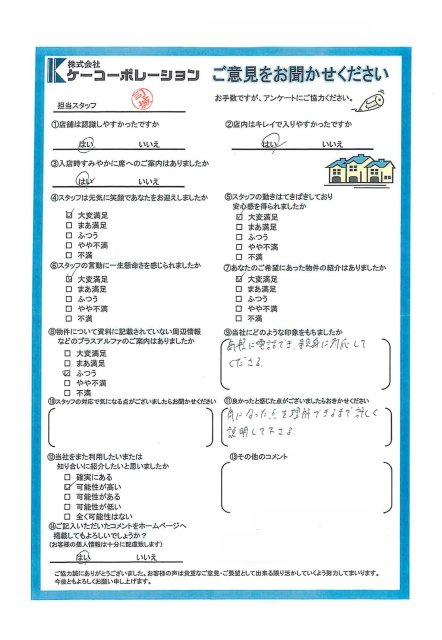 株式会社
ケーコーポレーション
ご意見をお聞かせください
担当スタッフ
お手数ですが、アンケートにご協力ください。
①店舗は認識しやすかったですか
はい いいえ
②店内はキレイで入りやすかったですか
はい いいえ
③入店時すみやかに席へのご案内はありましたか
はい いいえ
④スタッフは元気に笑顔であなたをお迎えしましたか
☑ 大変満足
□ まあ満足
□ ふつう
□ やや不満
□ 不満
⑤スタッフの動きはてきぱきしており
安心感を得られましたか
☑ 大変満足
□ まあ満足
□ ふつう
□ やや不満
□ 不満
⑥スタッフの言動に一生懸命さを感じられましたか
☑ 大変満足
□ まあ満足
□ ふつう
□ やや不満
□ 不満
⑦あなたのご希望にあった物件の紹介はありましたか
☑ 大変満足
□ まあ満足
□ ふつう
□ やや不満
□ 不満
⑧物件について資料に記載されていない周辺情報
などのプラスアルファのご案内はありましたか
□ 大変満足
□ まあ満足
☑ ふつう
□ やや不満
□ 不満
⑨当社にどのような印象をもちましたか
気軽に電話でき、親身に対応して
くださる。
⑩スタッフの対応で気になる点がございましたらお聞かせください
⑪良かったと感じた点がございましたらおきかせください
気になった点を理解できるまで詳しく
説明して下さる。
⑫当社をまた利用したいまたは
知り合いに紹介したいと思いましたか
□ 確実にある
☑ 可能性が高い
□ 可能性がある
□ 可能性が低い
□ 全く可能性はない
⑬その他のコメント
⑭ご記入いただいたコメントをホームページへ
掲載してもよろしいでしょうか?
(お客様の個人情報は十分に配慮致します)
はい いいえ
ご協力誠にありがとうございました。お客様の声は貴重なご意見・ご要望として出来る限り活かしていくよう努力してまいります。
今後ともよろしくお願い申し上げます。